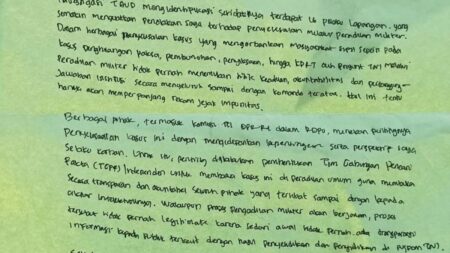 Investigasi TAUD mengidentifikasi setidaknya terdapat 16 pelaku lapangan, yang
semakin menguatkan penolakan saya terhadap penyelesaian melalui peradilan militer.
Dalam berbagai penyelesaian kasus yang mengorbankan masyarakat sipil seperti pada
kasus penghilangan paksa, pembunuhan, penyiksaan, hingga KDRT oleh prajurit TNI melalui
Peradilan militer tidak pernah menemukan titik keadilan, akuntabilitas dan pertanggung-
jawaban institusi secara menyeluruh sampai dengan komando teratas. Hal ini tentu
hanya akan memperpanjang rekam jejak impunitas.
Berbagai pihak, termasuk Komisi III DPR-RI dalam RDPU, menekan pentingnya
Penyelesaian kasus ini dengan mengedepankan kepentingan serta perspektif saya
selaku korban. Untuk itu, penting dilakukannya pembentukan Tim Gabungan Pencari
Fakta (TGPF) Independen untuk membawa kasus ini di peradilan umum guna membuka
secara transparan dan akuntabel seluruh pihak yang terlibat sampai dengan kepada
aktor intelektualnya. Walaupun proses pengadilan militer akan berjalan, proses
tersebut tidak pernah legitimate karena sedari awal tidak pernah ada transparansi
informasi kepada publik terkait dengan hasil penyelidikan dan penyidikan di Puspom TNI.